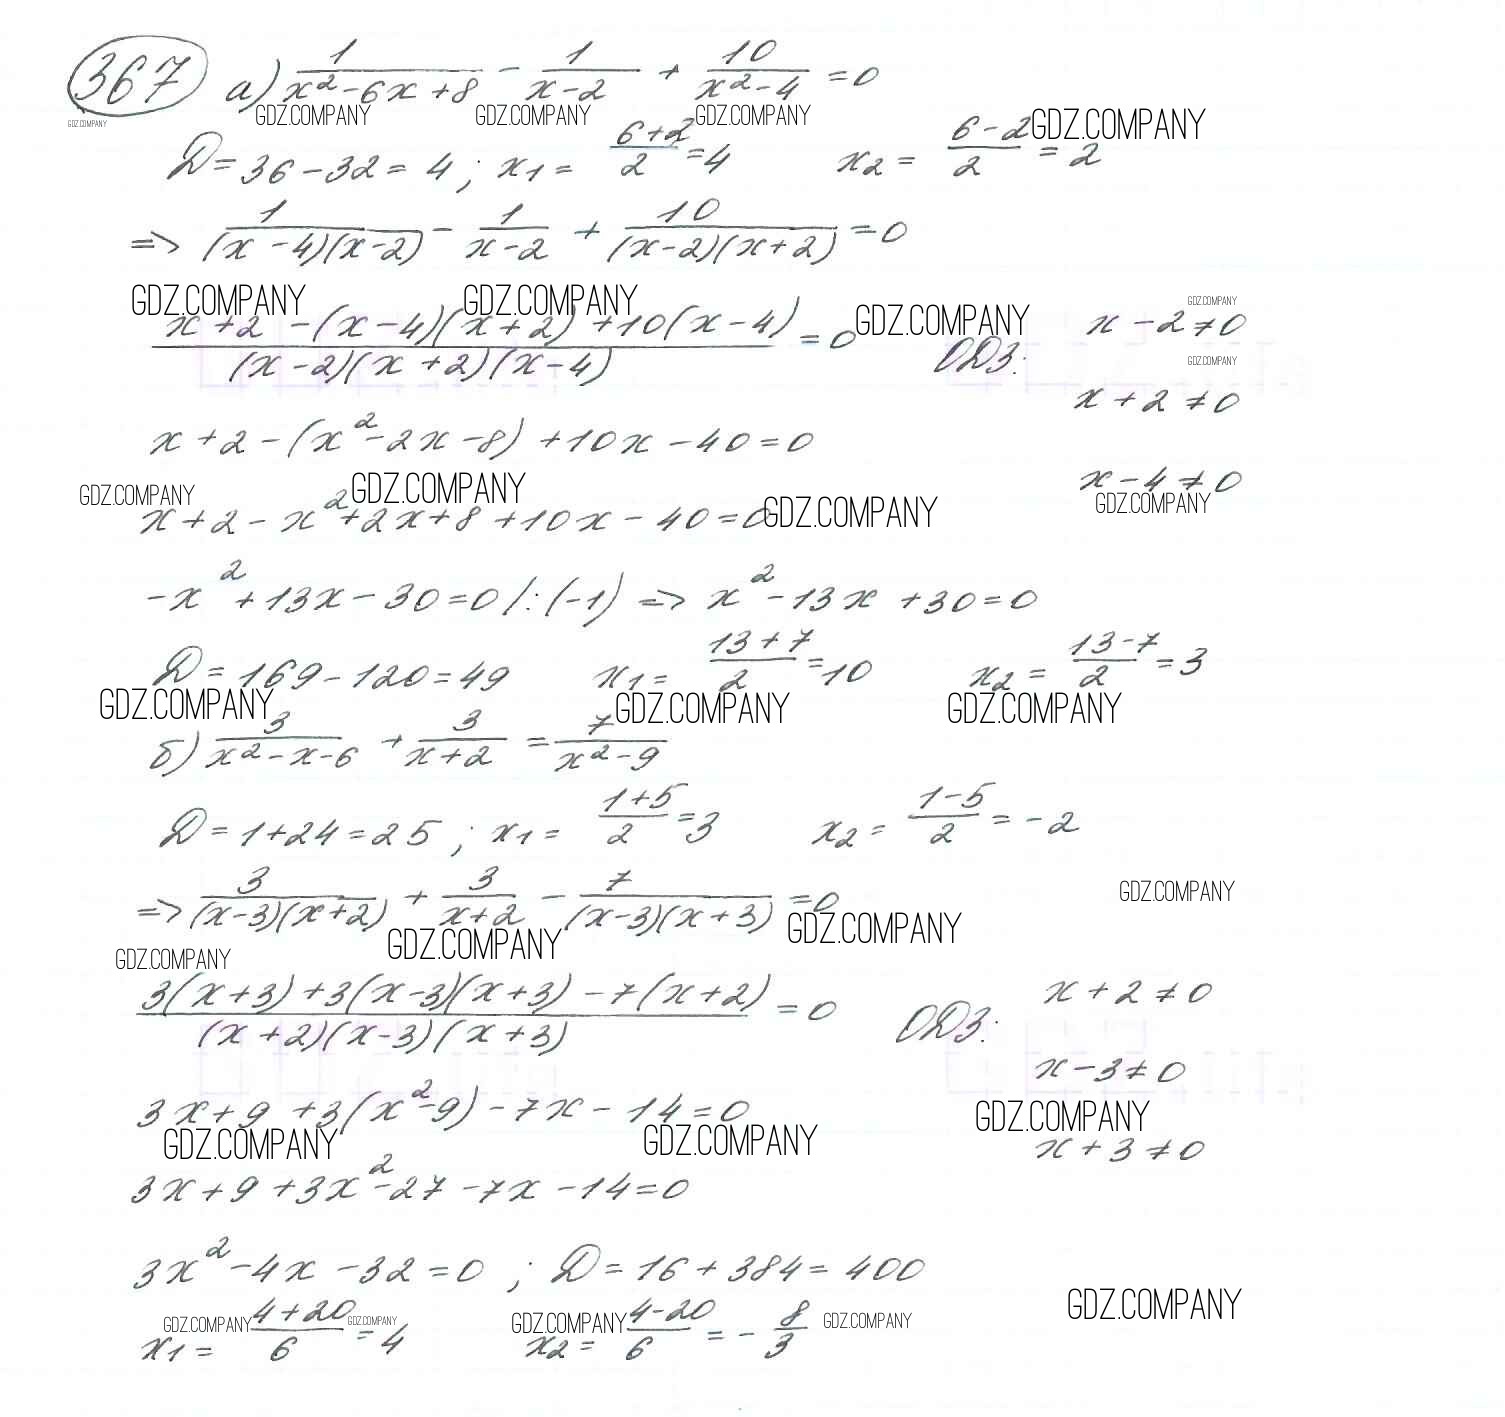 367 а) 1/(x²-6x+8) - 1/(x-2) + 10/(x²-4) = 0
GDZ.COMPANY GDZ.COMPANY GDZ.COMPANY GDZ.COMPANY GDZ.COMPANY
D = 36 - 32 = 4 ; x1 = (6+2)/2 = 4 x2 = (6-2)/2 = 2
=> 1/((x-4)(x-2)) - 1/(x-2) + 10/((x-2)(x+2)) = 0
GDZ.COMPANY GDZ.COMPANY GDZ.COMPANY GDZ.COMPANY
(x+2 - (x-4)(x+2) + 10(x-4))/((x-2)(x+2)(x-4)) = 0 ОДЗ: x - 2 ≠ 0
GDZ.COMPANY
x + 2 ≠ 0
x + 2 - (x² - 2x - 8) + 10x - 40 = 0
x - 4 ≠ 0
GDZ.COMPANY GDZ.COMPANY GDZ.COMPANY GDZ.COMPANY
x + 2 - x² + 2x + 8 + 10x - 40 = 0
-x² + 13x - 30 = 0 /:(-1) => x² - 13x + 30 = 0
D = 169 - 120 = 49 x1 = (13+7)/2 = 10 x2 = (13-7)/2 = 3
GDZ.COMPANY GDZ.COMPANY GDZ.COMPANY
б) 3/(x²-x-6) + 3/(x+2) = 7/(x²-9)
D = 1 + 24 = 25 ; x1 = (1+5)/2 = 3 x2 = (1-5)/2 = -2
=> 3/((x-3)(x+2)) + 3/(x+2) - 7/((x-3)(x+3)) = 0
GDZ.COMPANY
GDZ.COMPANY GDZ.COMPANY GDZ.COMPANY
(3(x+3) + 3(x-3)(x+3) - 7(x+2))/((x+2)(x-3)(x+3)) = 0 ОДЗ: x + 2 ≠ 0
x - 3 ≠ 0
3x + 9 + 3(x² - 9) - 7x - 14 = 0
GDZ.COMPANY GDZ.COMPANY GDZ.COMPANY
x + 3 ≠ 0
3x + 9 + 3x² - 27 - 7x - 14 = 0
3x² - 4x - 32 = 0 ; D = 16 + 384 = 400
GDZ.COMPANY GDZ.COMPANY GDZ.COMPANY GDZ.COMPANY GDZ.COMPANY
x1 = (4+20)/6 = 4 x2 = (4-20)/6 = -8/3